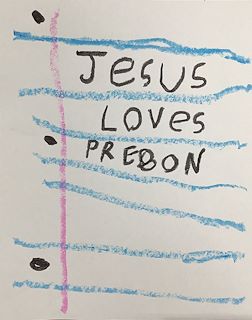 JESUS
LOVES
PREBON